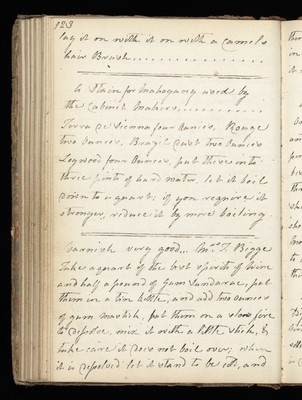 123
lay it on with it on with a camels
hair Brush
a Stain for Mahogany used by
the Cabinet Makers
Terra de Sienna four Ounces, Rouge
two Ounces, Brazil dust two Ounces
Logwood four Ounces, put these into
three pints of hard water, let it boil
down to a quart, if you require it
stronger, reduce it by more boiling.
Varnish very good... Mrs. T. Bigge
Take a quart of the best spirits of Wine
and half a pound of Gum Sandarac, put
them in a tin kettle, and add two ounces
of gum mastich, put them on a slow fire
to desolve, mix it with a little stick, &
take care it does not boil over; when
it is desolved let it stand to be cold, and